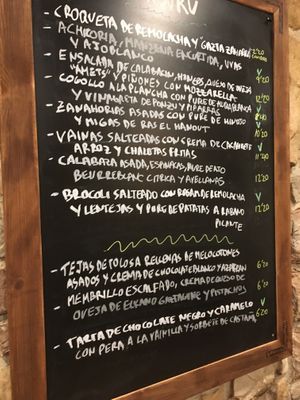 - CROQUETA DE REMOLACHA Y "GAZTA ZAHARRA" 2'20
- ACHICORIA, MANZANA ENCURTIDA, UVAS
Y AJOBLANCO
- ENSALADA DE CALABACIN, HONGOS, QUESO DE OVEJA
Y PIÑONES CON MOZZARELLA
- COGOLLO A LA PLANCHA CON PURE DE
Y VINAGRETA DE PONZU Y PIPARRAS
- ZANAHORIAS ASADAS CON PURE DE HINOJO
Y MIGAS DE RAS EL HANOUT 10'20
- VAINAS SALTEADAS CON CREMA DE CACAHUETE
ARROZ Y CHALOTAS FRITAS
- CALABAZA ASADA, ESPINACAS, PURE DE AJO
BEURREBLANC CITRICA Y AVELLANAS 12'20
- BROCOLI SALTEADO CON ROMESCU DE REMOLACHA
Y LENTEJAS Y PURE DE PATATAS A RABANO 12'20
PICANTE
- TEJAS DE TOLOSA RELLENAS DE MELOCOTONES 6'20
ASADOS Y CREMA DE CHOCOLATE BLANCO Y AZAFRAN
- MEMBRILLO ESCALFADO, CREMA DE QUESO DE 6'20
OVEJA DE ELKANO GAZTAGINE Y PISTACHOS
- TARTA DE CHOCOLATE NEGRO Y CARAMELO 6'20
CON PERA A LA VAINILLA Y SORBETE DE CASTAÑA